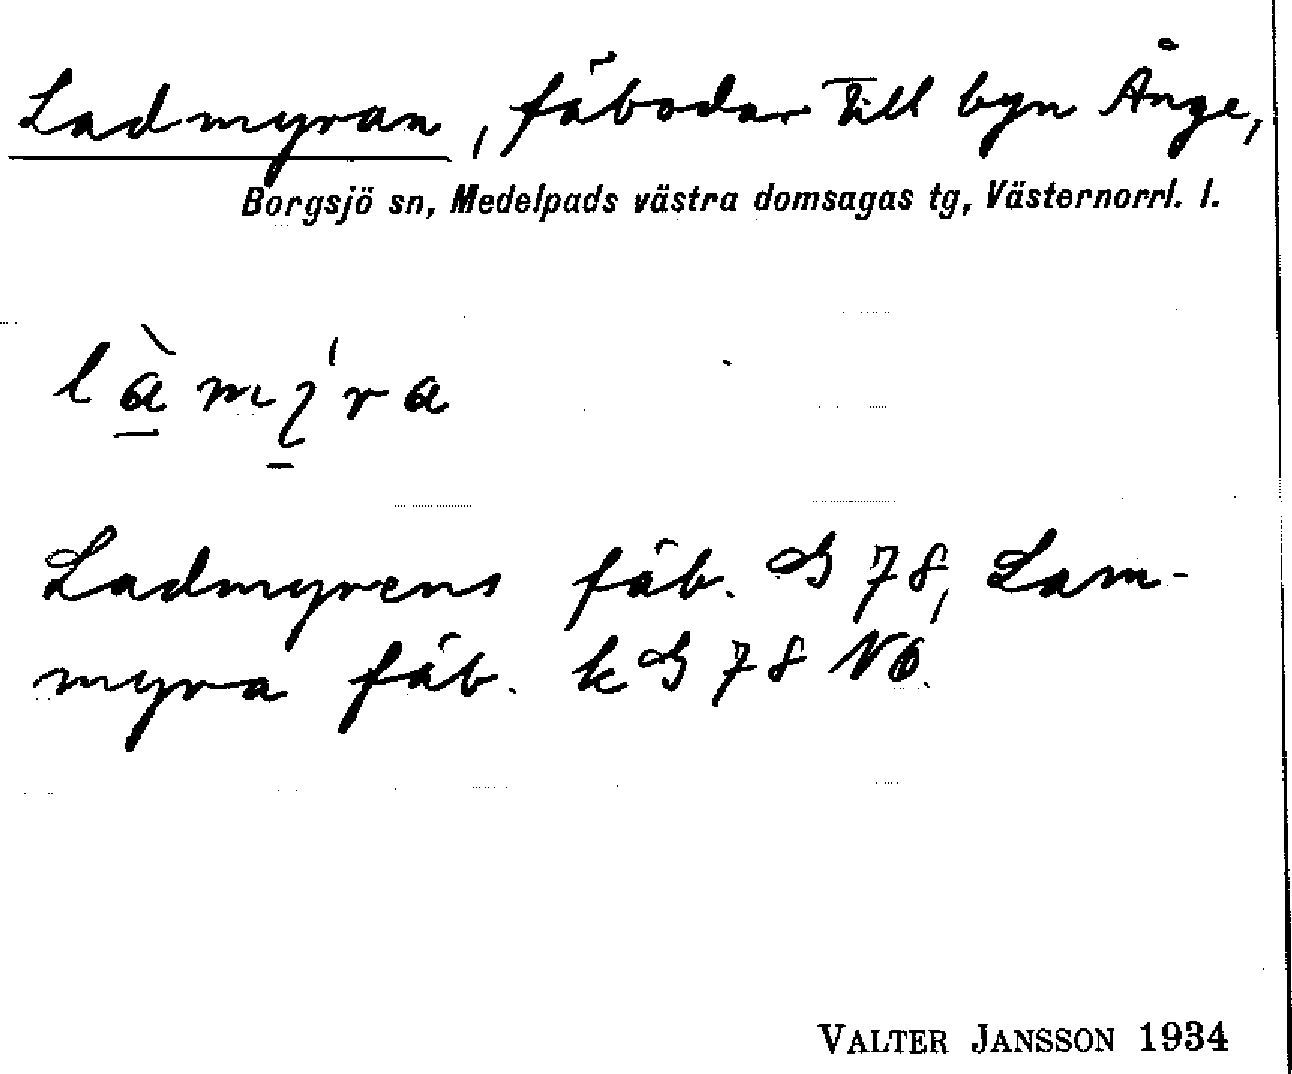 Ladmyran, fäbodar till byn Ånge,
Borgsjö sn, Medelpads västra domsagas tg, Västernorrl. l.
Ladmyrens fäb. G 78, Lam-
myra fäb. k G 78 NO.
VALTER JANSSON 1934